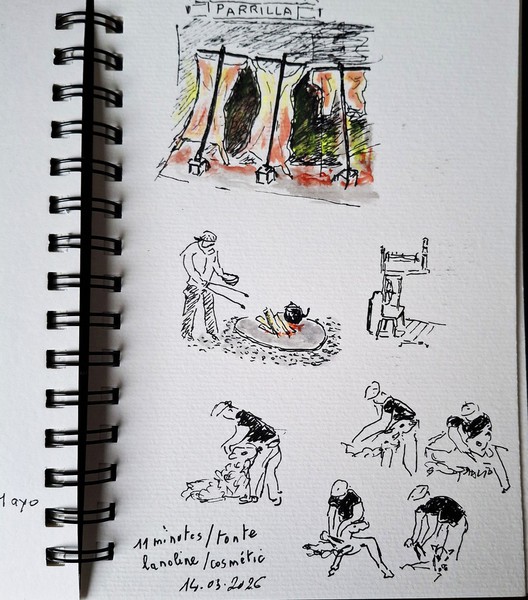 PARRILLA
Mayo
11 minutes/tonte
lanoline/cosmétic
14.03.2026